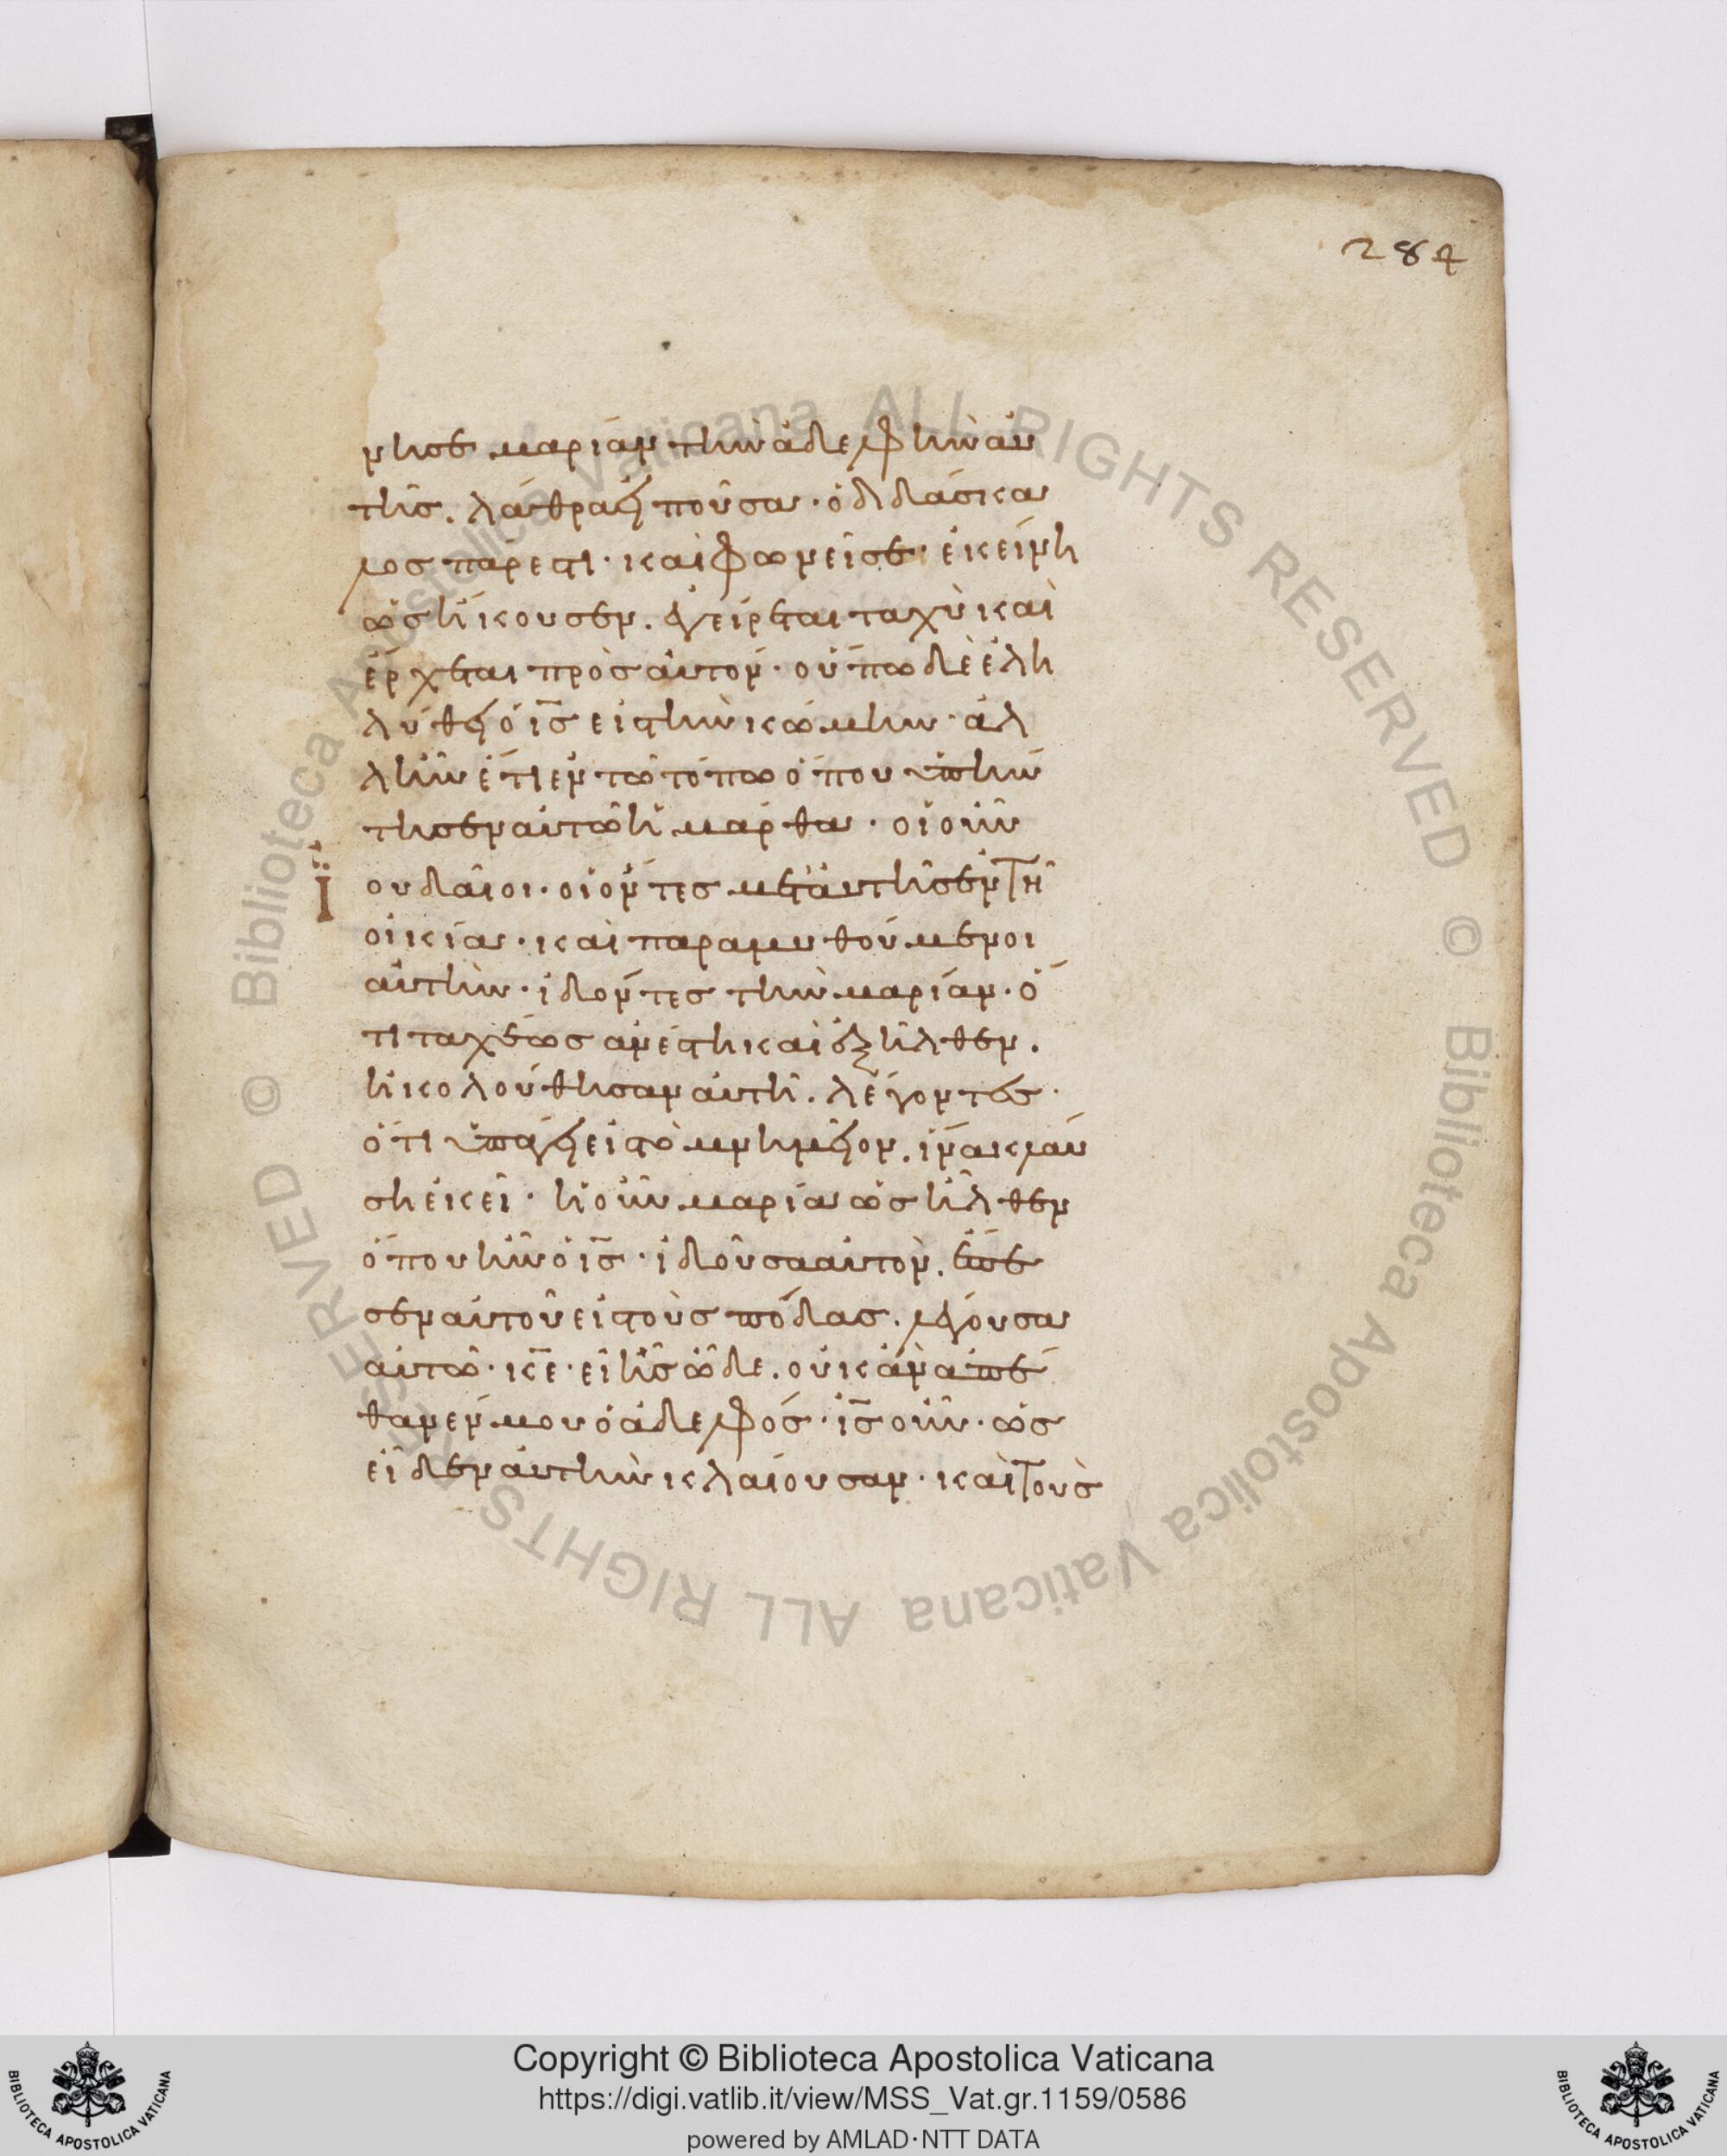 284
νησε μαριαμ τὴν ἀδελφὴν αὐ
τῆς. λάθρα εἰποῦσα· ὁ διδάσκα
λος πάρεστι· καὶ φωνεῖ σε· ἐκείνη
ὡς ἤκουσεν. ἐγείρεται ταχὺ καὶ
ἔρχεται πρὸς αὐτόν· οὔπω δὲ ἐλη
λύθει ὁ ι̅ς̅ εἰς τὴν κώμην· ἀλ
λ ἦν ἔτι ἐν τῶ τόπω ὅπου ὑπήν
τησεν αὐτῶ ἡ μάρθα· οἱ οὖν
ϊουδαῖοι· οἱ ὄντες μετ αὐτῆς ἐν τῆ
οἰκία· καὶ παραμυθούμενοι
αὐτὴν· ἰδόντες τὴν μαριάμ· ὅ
τι ταχέως ἀνέστη καὶ ἐξῆλθεν.
ἠκολούθησαν αὐτῆ. λέγοντες·
ὅτι ὑπάγει εἰς τὸ μνημεῖον. ἵνα κλαύ
ση ἐκεῖ· ἡ οὖν μαρία ὡς ἦλθεν
ὅπου ἦν ὁ ι̅ς̅· ἰδοῦσα αὐτὸν. ἔπε
σεν αὐτοῦ εἰς τοὺς πόδας. λέγουσα
αὐτῶ· κ̅ε̅· εἰ ἦς ὧδε. οὐκ ἂν ἀπέ
θανέν μου ὁ ἀδελφός· ι̅ς̅ οὖν· ὡς
εἶδεν αὐτὴν κλαίουσαν· καὶ τοὺς
© Biblioteca Apostolica Vaticana ALL RIGHTS RESERVED
© Biblioteca Apostolica Vaticana ALL RIGHTS RESERVED
BIBLIOTECA APOSTOLICA VATICANA
Copyright © Biblioteca Apostolica Vaticana
https://digi.vatlib.it/view/MSS_Vat.gr.1159/0586
powered by AMLAD·NTT DATA
BIBLIOTECA APOSTOLICA VATICANA